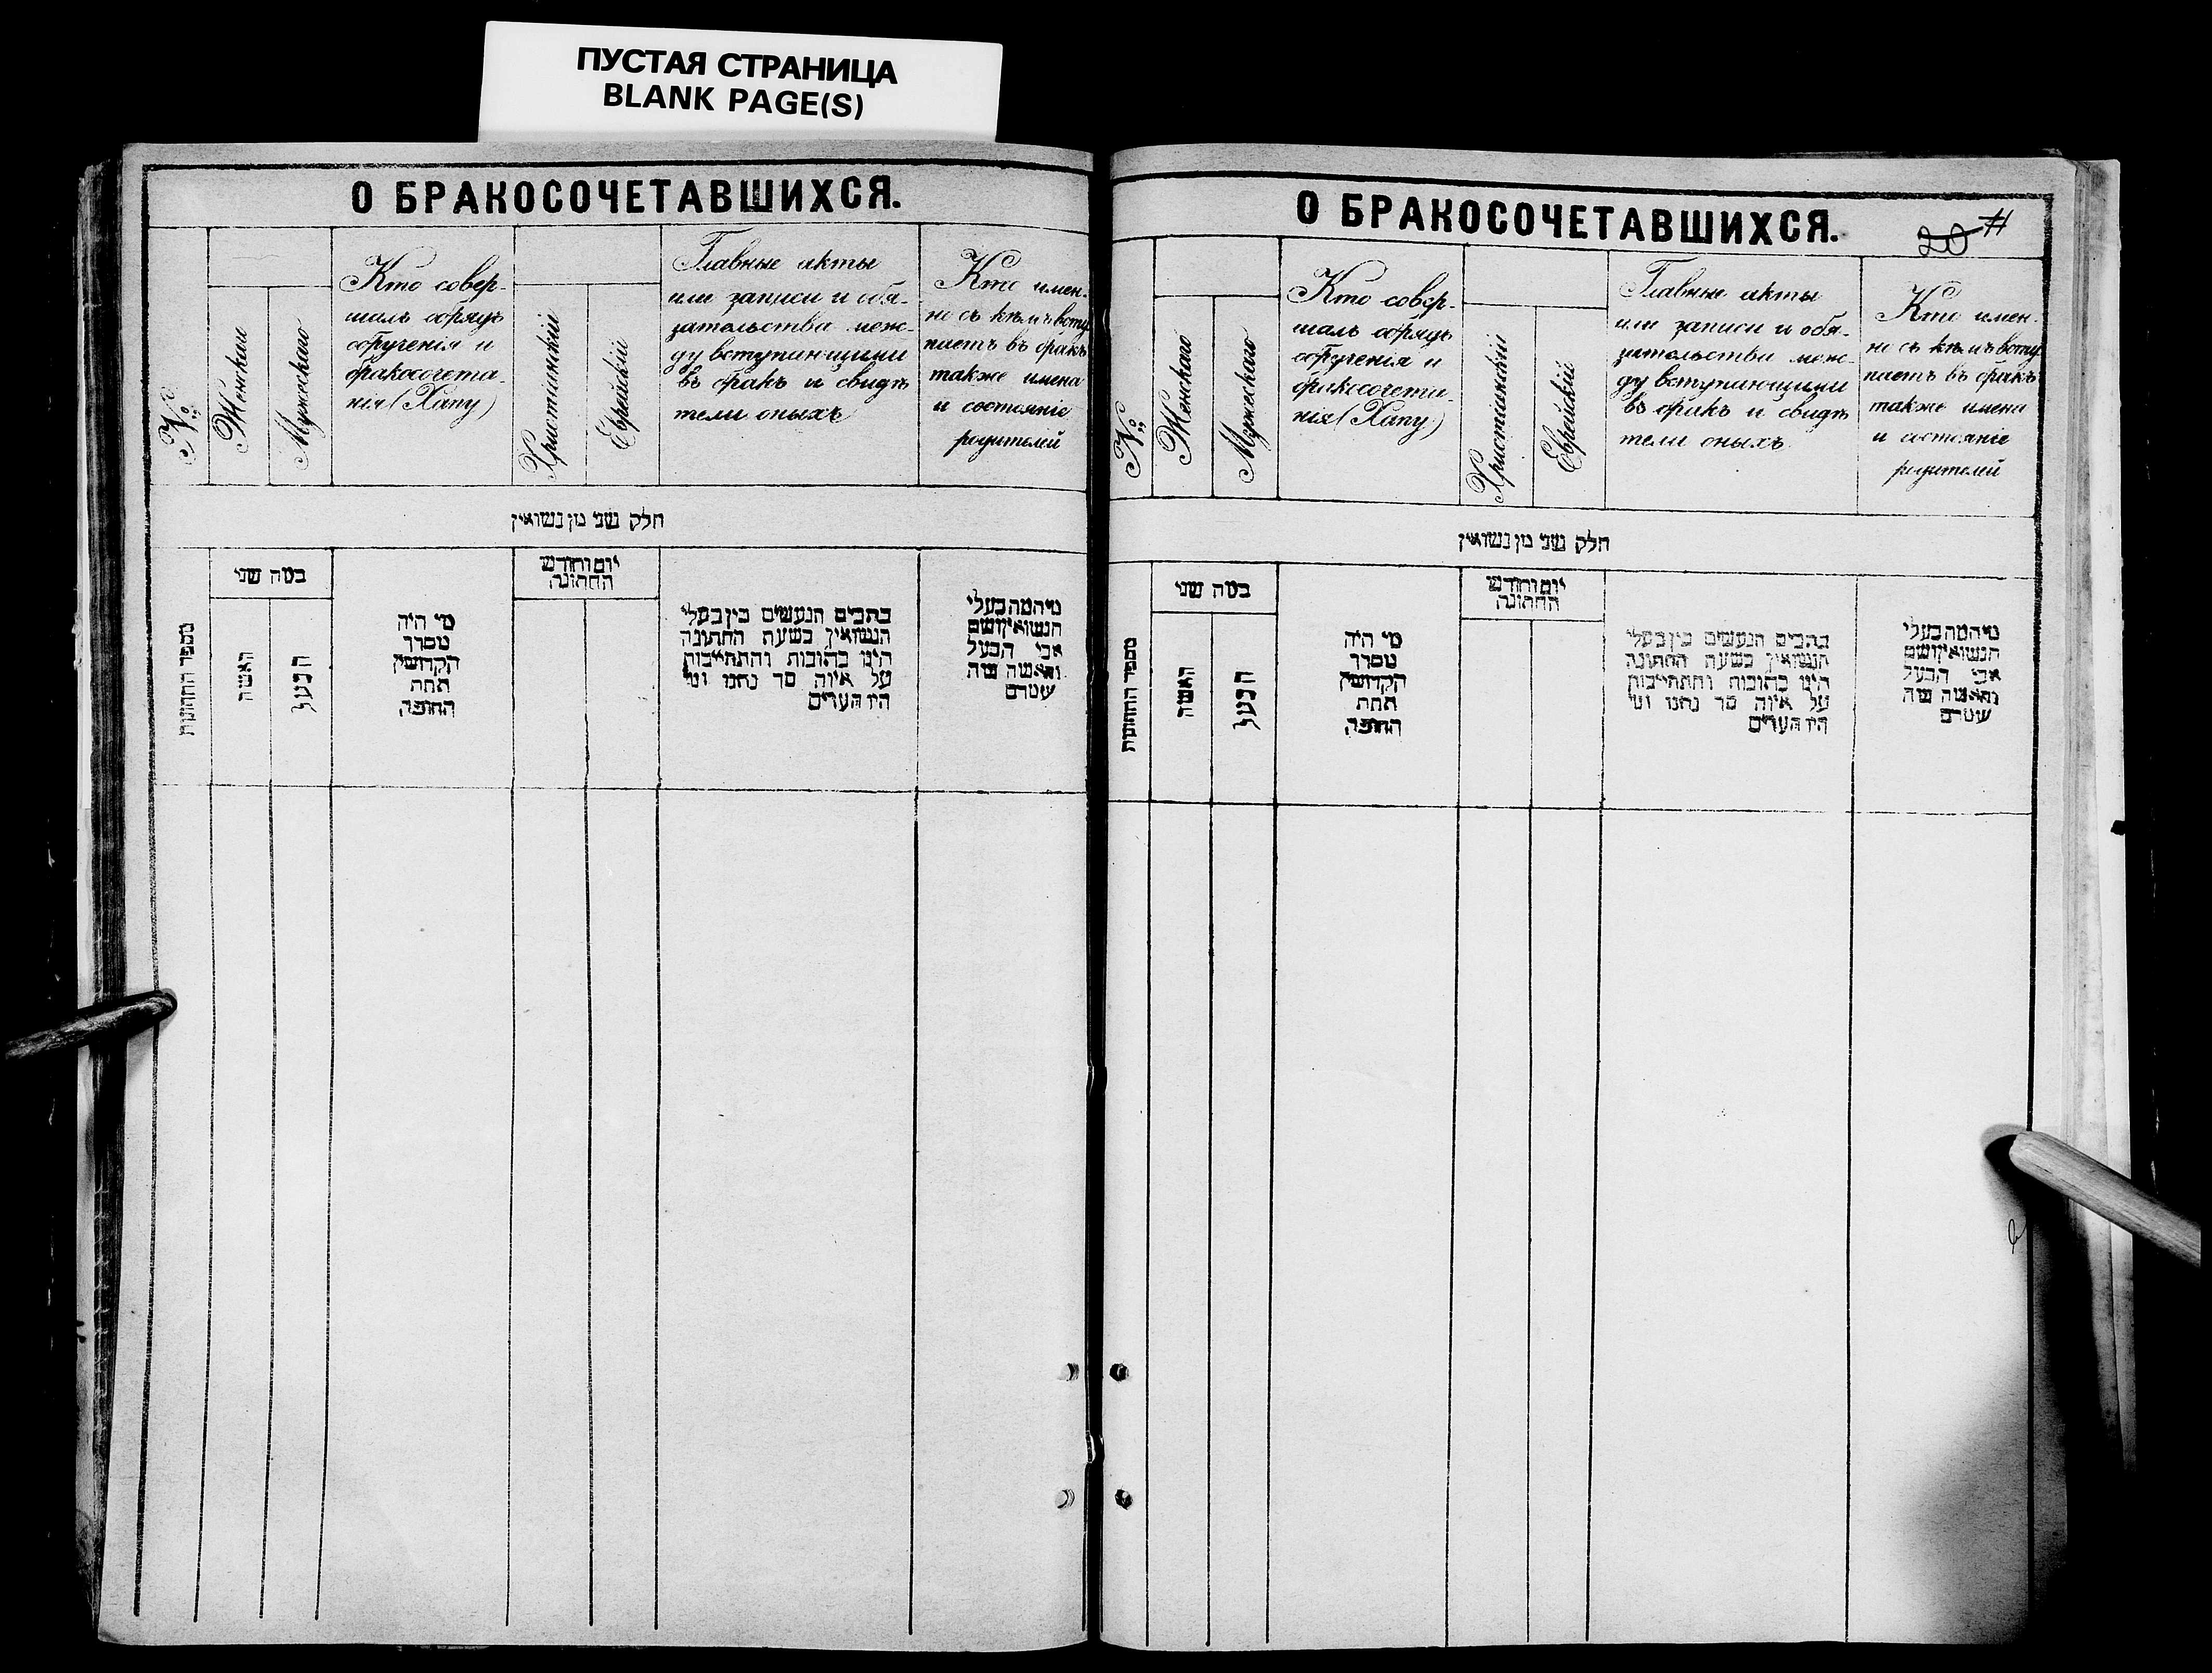 ПУСТАЯ СТРАНИЦА
BLANK PAGE(S)
О БРАКОСОЧЕТАВШИХСЯ.
№
Женскаго
Мужескаго
Кто совер-
шалъ обрядъ
обрученія и
бракосочета-
нія (Хупу)
Христіанскій
Еврейскій
Главные акты
или записи и обя-
зательства меж-
ду вступающими
въ бракъ и свидѣ
тели оныхъ
Кто имен-
но съ кѣмъ всту
паетъ въ бракъ
также имена
и состояніе
родителей
חלק שני מן נשואין
מספר החתונות
כמה שני
האשה
הבעל
מי היה
מסדר
הקדושין
תחת
החופה
יום וחודש
החתונה
כתבים הנעשים בין בעלי
הנשואין בשעת החתונה
היינו כתובות והתחייבות
על איזה סך נתנו ומי
היו העדים
מי המה בעלי
הנשואין ושם
אבי הבעל
והאשה ומה
מעמדם
О БРАКОСОЧЕТАВШИХСЯ.
20 11
№
Женскаго
Мужескаго
Кто совер-
шалъ обрядъ
обрученія и
бракосочета-
нія (Хупу)
Христіанскій
Еврейскій
Главные акты
или записи и обя-
зательства меж-
ду вступающими
въ бракъ и свидѣ
тели оныхъ
Кто имен-
но съ кѣмъ всту
паетъ въ бракъ
также имена
и состояніе
родителей
חלק שני מן נשואין
מספר החתונות
כמה שני
האשה
הבעל
מי היה
מסדר
הקדושין
תחת
החופה
יום וחודש
החתונה
כתבים הנעשים בין בעלי
הנשואין בשעת החתונה
היינו כתובות והתחייבות
על איזה סך נתנו ומי
היו העדים
מי המה בעלי
הנשואין ושם
אבי הבעל
והאשה ומה
מעמדם